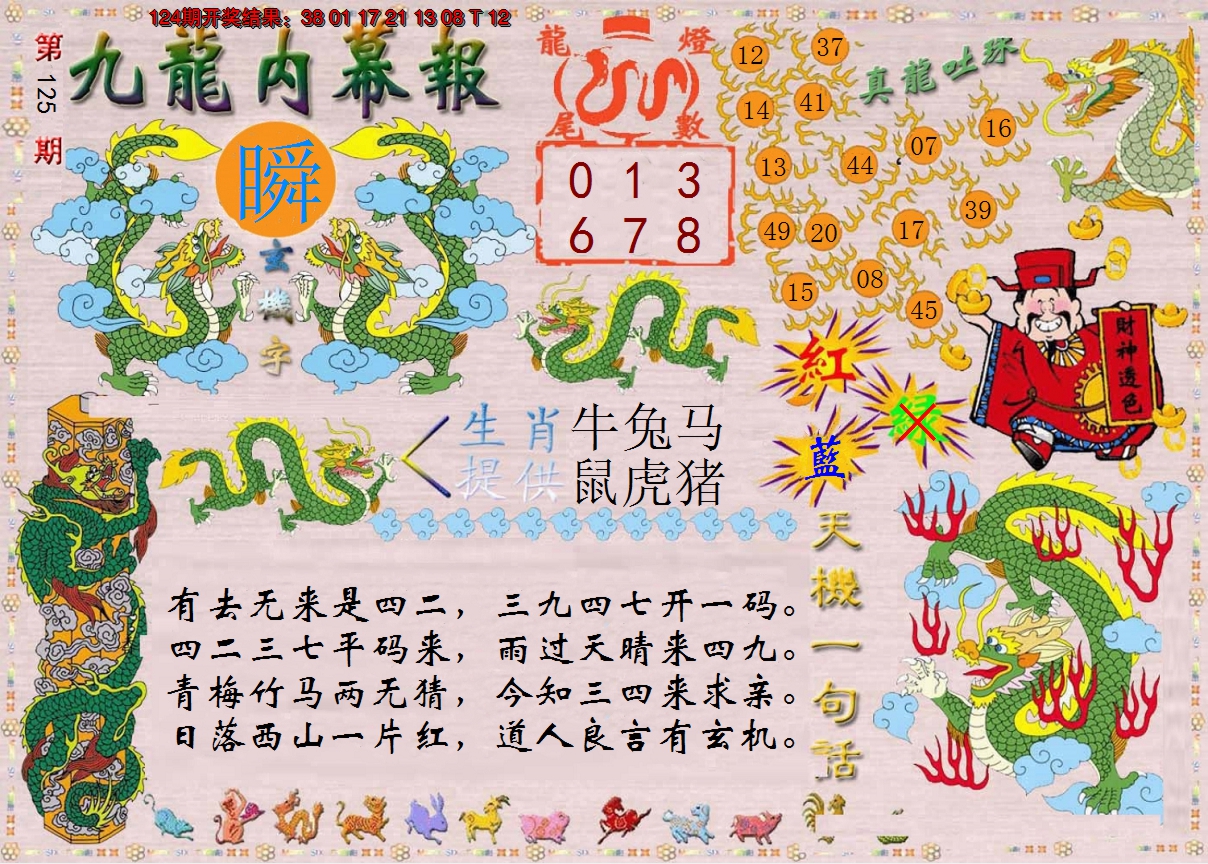 124期开奖结果：38 01 17 21 13 08 T 12
第125期
九龍内幕報
瞬
玄機字
龍燈尾數
0 1 3
6 7 8
真龍吐珠
12 37
14 41
13 44 07 16
49 20 17 39
15 08 45
紅
绿
藍
財神透色
生肖提供
牛兔马
鼠虎猪
天機一句話
有去无来是四二，三九四七开一码。
四二三七平码来，雨过天晴来四九。
青梅竹马两无猜，今知三四来求亲。
日落西山一片红，道人良言有玄机。